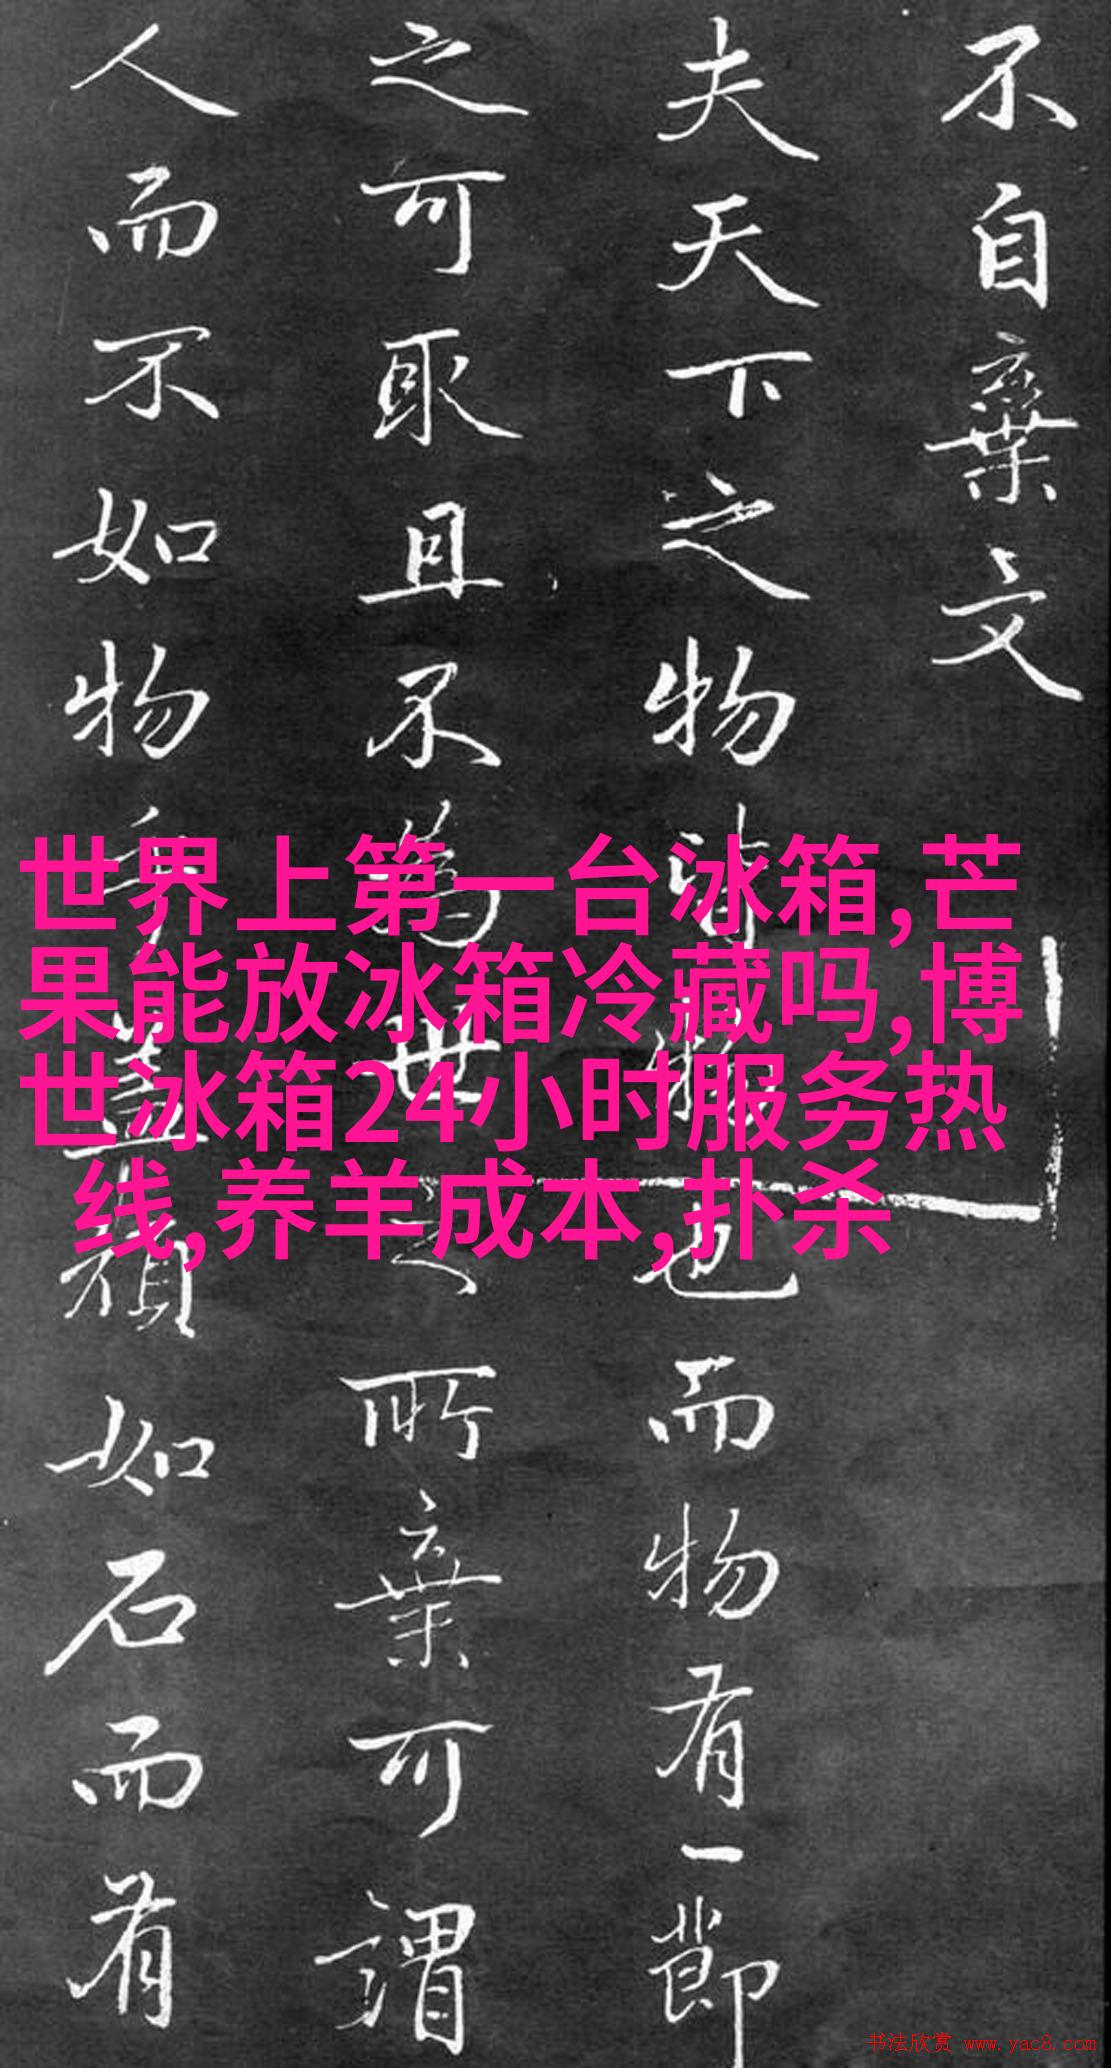 不自棄文
夫天下之物皆物也而物有一節
之可取且不為世之所棄可謂
人而不如物乎蓋頑如石而有
世界上第一台冰箱,芒
果能放冰箱冷藏吗,博
世冰箱24小时服务热
线,养羊成本,扑杀
书法欣赏 www.yac8.com